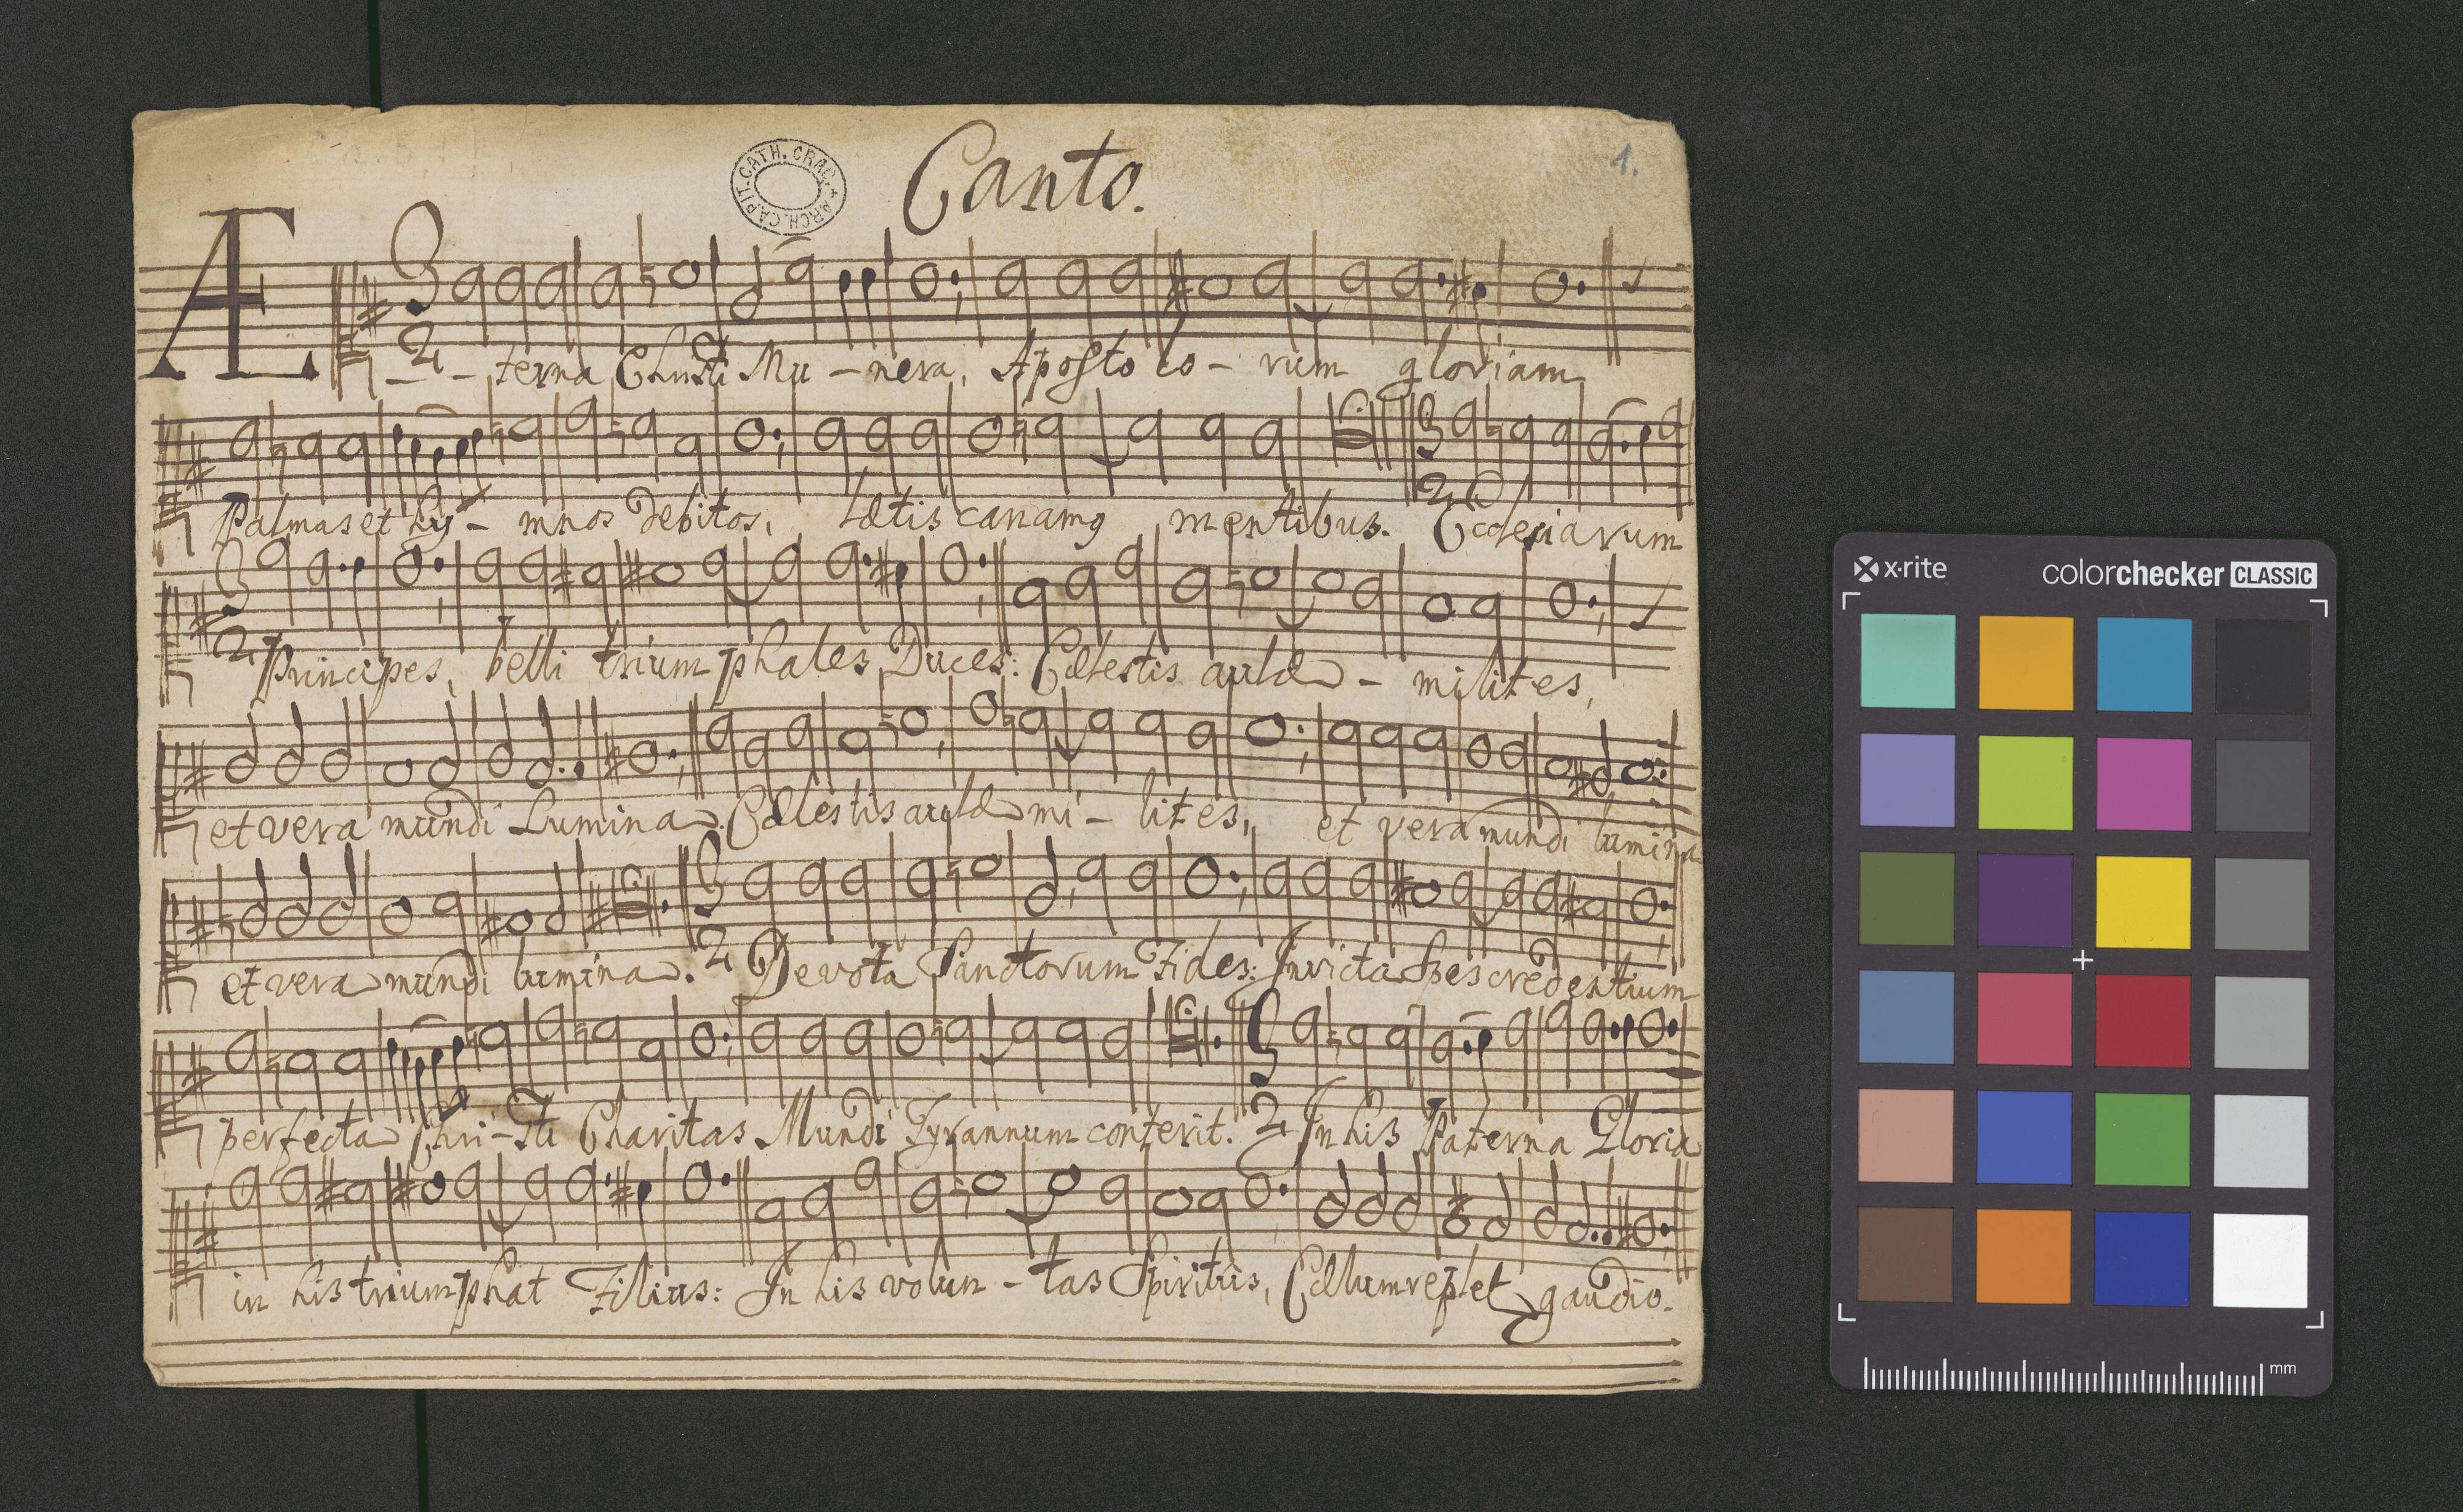 Canto.
ARCH. CAPIT. CATH. CRAC.
1.
Æ - - terna Christi Mu - nera, Aposto lo - rum gloriam
Palmas et hy - mnos debitos, Lætis canamq mentibus. Ecclesiarum
Principes, belli triumphales Duces: Cælestis aulæ - milites,
et vera mundi Lumina. Cælestis aulæ mi - lites, et vera mundi lumina
et vera mundi lumina. Devota Sanctorum Fides: Invicta Spes credentium
perfecta Chri - sti Charitas Mundi Tyrannum conterit. In his Paterna Gloria
in his triumphat Filius: In his volun - tas Spiritûs, Cælum replet gaudio.
x·rite
colorchecker CLASSIC
mm